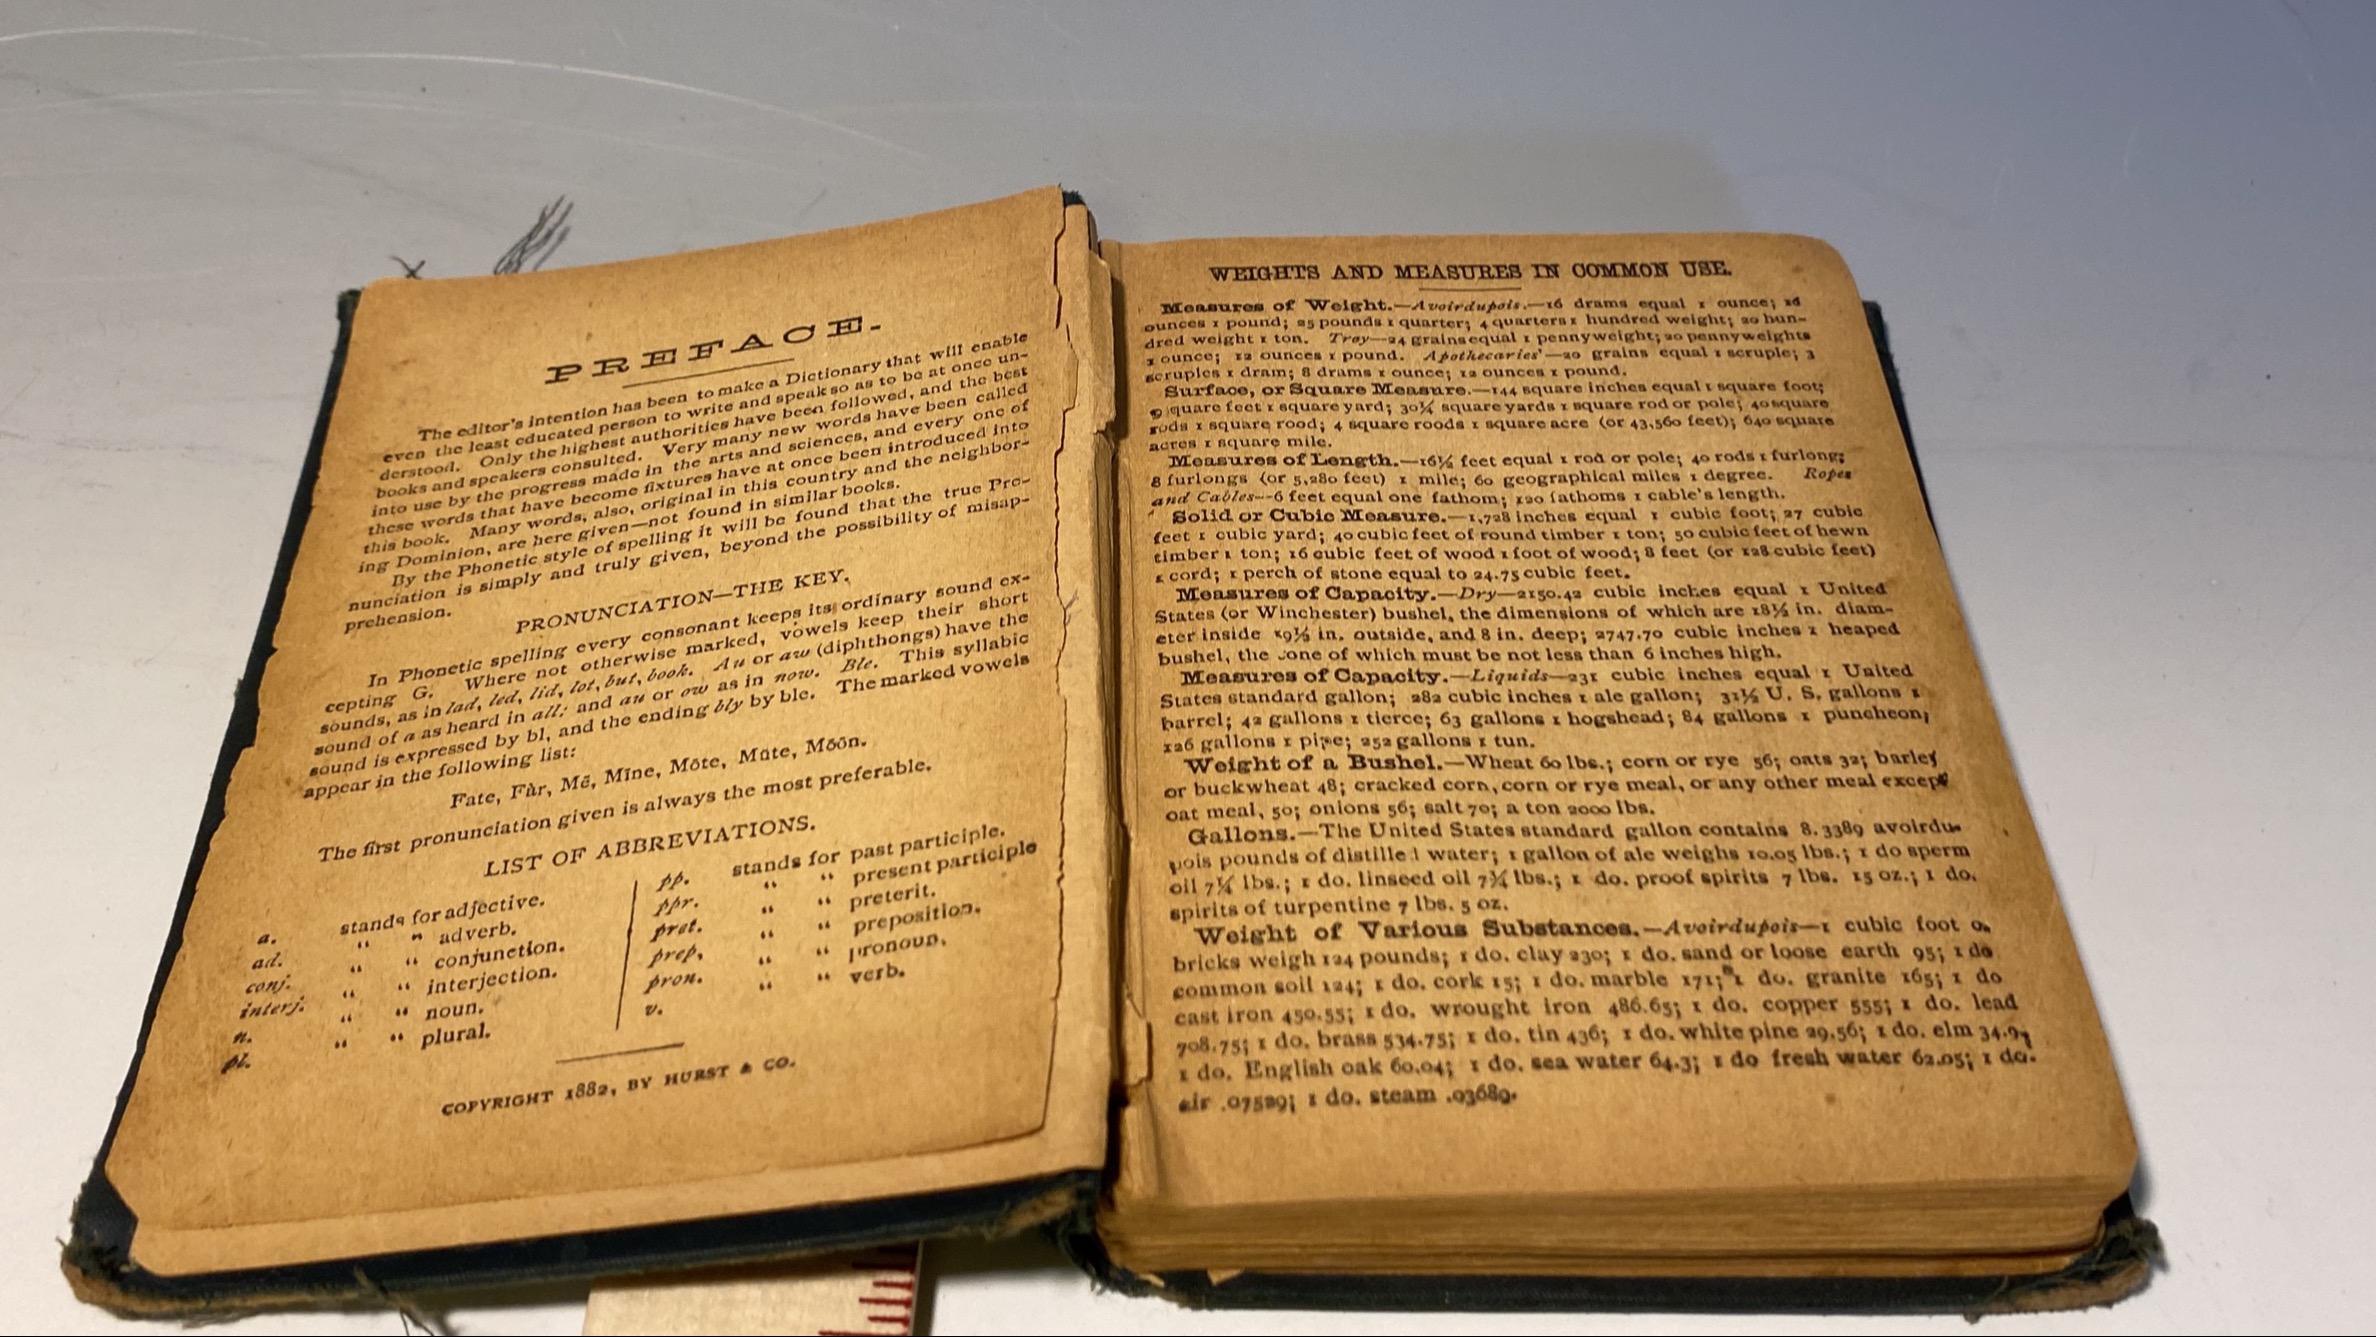 PREFACE.
The editor's intention has been to make a Dictionary that will enable
even the least educated person to write and speak so as to be at once un-
derstood. Only the highest authorities have been followed, and the best
books and speakers consulted. Very many new words have been called
into use by the progress made in the arts and sciences, and every one of
these words that have become fixtures have at once been introduced into
this book. Many words, also, original in this country and the neighbor-
ing Dominion, are here given—not found in similar books.
By the Phonetic style of spelling it will be found that the true Pro-
nunciation is simply and truly given, beyond the possibility of misap-
prehension.
PRONUNCIATION—THE KEY.
In Phonetic spelling every consonant keeps its ordinary sound ex-
cepting G. Where not otherwise marked, vowels keep their short
sounds, as in lad, led, lid, lot, but, book. Au or aw (diphthongs) have the
sound of a as heard in all; and au or ow as in now. Ble. This syllabic
sound is expressed by bl, and the ending bly by ble. The marked vowels
appear in the following list:
Fate, Fàr, Mē, Mīne, Mōte, Mūte, Mōōn.
The first pronunciation given is always the most preferable.
LIST OF ABBREVIATIONS.
a. stands for adjective.
ad. “ “ adverb.
conj. “ “ conjunction.
interj. “ “ interjection.
n. “ “ noun.
pl. “ “ plural.
pp. stands for past participle.
ppr. “ “ present participle
pret. “ “ preterit.
prep. “ “ preposition.
pron. “ “ pronoun.
v. “ “ verb.
COPYRIGHT 1882, BY HURST & CO.
WEIGHTS AND MEASURES IN COMMON USE.
Measures of Weight.—Avoirdupois.—16 drams equal 1 ounce; 16
ounces 1 pound; 25 pounds 1 quarter; 4 quarters 1 hundred weight; 20 hun-
dred weight 1 ton. Troy—24 grains equal 1 pennyweight; 20 pennyweights
1 ounce; 12 ounces 1 pound. Apothecaries'—20 grains equal 1 scruple; 3
scruples 1 dram; 8 drams 1 ounce; 12 ounces 1 pound.
Surface, or Square Measure.—144 square inches equal 1 square foot;
9 square feet 1 square yard; 30¼ square yards 1 square rod or pole; 40 square
rods 1 square rood; 4 square roods 1 square acre (or 43,560 feet); 640 square
acres 1 square mile.
Measures of Length.—16½ feet equal 1 rod or pole; 40 rods 1 furlong;
8 furlongs (or 5,280 feet) 1 mile; 60 geographical miles 1 degree. Ropes
and Cables—6 feet equal one fathom; 120 fathoms 1 cable's length.
Solid or Cubic Measure.—1,728 inches equal 1 cubic foot; 27 cubic
feet 1 cubic yard; 40 cubic feet of round timber 1 ton; 50 cubic feet of hewn
timber 1 ton; 16 cubic feet of wood 1 foot of wood; 8 feet (or 128 cubic feet)
1 cord; 1 perch of stone equal to 24.75 cubic feet.
Measures of Capacity.—Dry—2150.42 cubic inches equal 1 United
States (or Winchester) bushel, the dimensions of which are 18½ in. diam-
eter inside 19½ in. outside, and 8 in. deep; 2747.70 cubic inches 1 heaped
bushel, the cone of which must be not less than 6 inches high.
Measures of Capacity.—Liquids—231 cubic inches equal 1 United
States standard gallon; 282 cubic inches 1 ale gallon; 31½ U. S. gallons 1
barrel; 42 gallons 1 tierce; 63 gallons 1 hogshead; 84 gallons 1 puncheon;
126 gallons 1 pipe; 252 gallons 1 tun.
Weight of a Bushel.—Wheat 60 lbs.; corn or rye 56; oats 32; barley
or buckwheat 48; cracked corn, corn or rye meal, or any other meal except
oat meal, 50; onions 56; salt 70; a ton 2000 lbs.
Gallons.—The United States standard gallon contains 8.3389 avoirdu-
pois pounds of distilled water; 1 gallon of ale weighs 10.05 lbs.; 1 do sperm
oil 7¼ lbs.; 1 do. linseed oil 7¾ lbs.; 1 do. proof spirits 7 lbs. 15 oz.; 1 do.
spirits of turpentine 7 lbs. 5 oz.
Weight of Various Substances.—Avoirdupois—1 cubic foot of
bricks weigh 124 pounds; 1 do. clay 230; 1 do. sand or loose earth 95; 1 do
common soil 124; 1 do. cork 15; 1 do. marble 171; 1 do. granite 165; 1 do
cast iron 450.55; 1 do. wrought iron 486.65; 1 do. copper 555; 1 do. lead
708.75; 1 do. brass 534.75; 1 do. tin 436; 1 do. white pine 29.56; 1 do. elm
1 do. English oak 60.04; 1 do. sea water 64.3; 1 do fresh water 62.05; 1 do.
air .07529; 1 do. steam .03689.